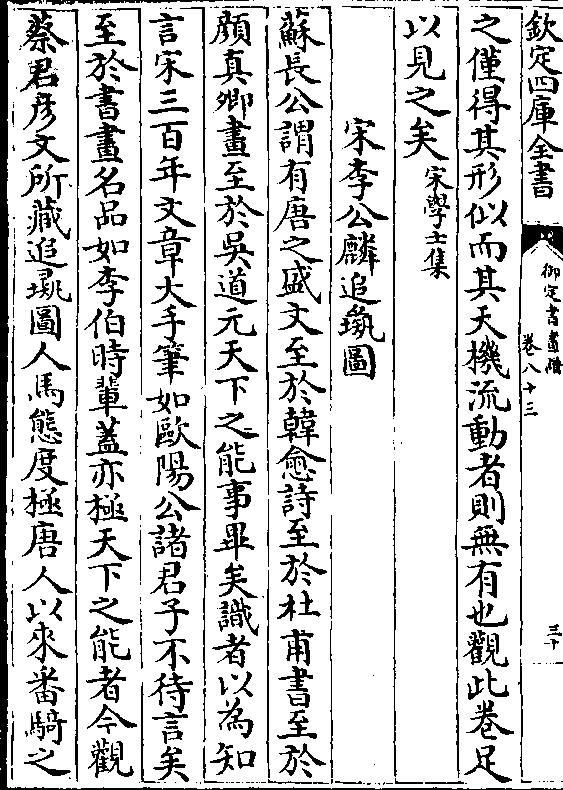 欽定四庫全書
御定書畫譜
卷八十三
三十
之僅得其形似而其天機流動者則無有也觀此卷足
以見之矣宋學士集
宋李公麟追圖
蘇長公謂有唐之盛文至於韓愈詩至於杜甫書至於
顔真卿畫至於吳道元天下之能事畢矣識者以為知
言宋三百年文章大手筆如歐陽公諸君子不待言矣
至於書畫名品如李伯時輩蓋亦極天下之能者今觀
蔡君彦文所藏追圖人馬態度極唐人以來番騎之